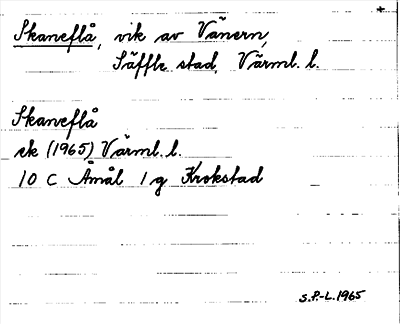 +
Skaneflå, vik av Vänern,
Säffle stad, Värml. l.
Skaneflå
ek (1965) Värml. l.
10 C Åmål 1 g Krokstad
S.P.-L. 1965